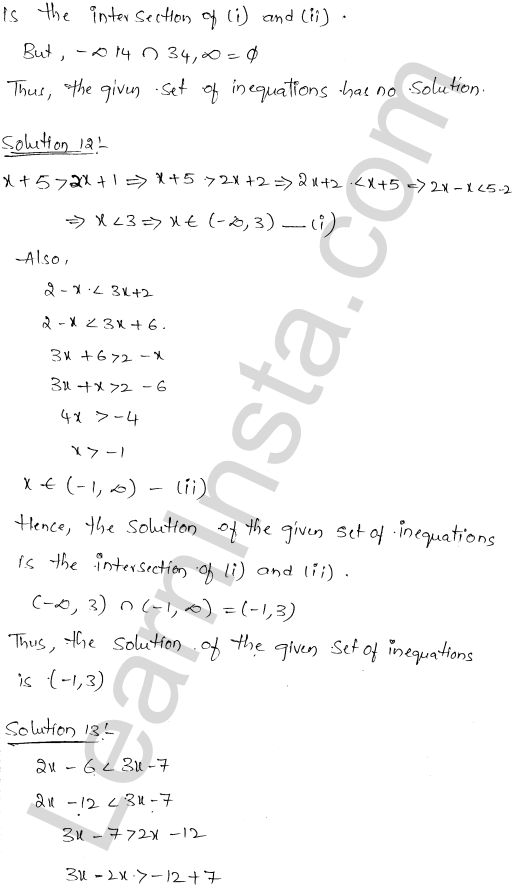 is the intersection of (i) and (ii).
But, -∞ 14 ∩ 34, ∞ = ϕ
Thus, the given set of inequations has no solution.
Solution 12:-
x + 5 > 2x + 1 ⇒ x + 5 > 2x + 2 ⇒ 2x + 2 < x + 5 ⇒ 2x - x < 5 - 2
⇒ x < 3 ⇒ x ∈ (-∞, 3) — (i)
Also,
2 - x < 3x + 2
2 - x < 3x + 6.
3x + 6 > 2 - x
3x + x > 2 - 6
4x > -4
x > -1
x ∈ (-1, ∞) - (ii)
Hence, the solution of the given set of inequations
is the intersection of (i) and (ii).
(-∞, 3) ∩ (-1, ∞) = (-1, 3)
Thus, the solution of the given set of inequations
is (-1, 3)
Solution 13:-
2x - 6 < 3x - 7
2x - 12 < 3x - 7
3x - 7 > 2x - 12
3x - 2x > -12 + 7
LearnInsta.com